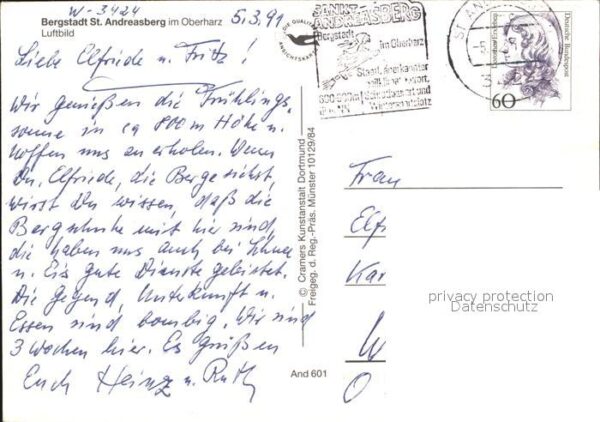 W-3424
Bergstadt St. Andreasberg im Oberharz
Luftbild
5.3.91
Liebe Elfriede u. Fritz!
Wir genießen die Frühlings-
sonne in ca 800 m Höhe u.
hoffen uns zu erholen. Wenn
Du, Elfriede, die Berge siehst,
wirst Du wissen, daß die
Bergschuhe mit hier sind,
die haben uns auch bei Schnee
u. Eis gute Dienste geleistet.
Die Gegend, Unterkunft u.
Essen sind bombig. Wir sind
3 Wochen hier. Es grüßen
Euch Heinz u. Ruth
© Cramers Kunstanstalt Dortmund
Freigeg. d. Reg.-Präs. Münster 10129/84
And 601
DIE QUALITÄTS
ANSICHTSKARTE
SANKT
ANDREASBERG
Bergstadt
im Oberharz
Staatl. anerkannter
Heilklimat. Kurort
Wintersportplatz
ST AN
Deutsche Bundespost
60
Frau
Elf
Kar
W
O
privacy protection
Datenschutz